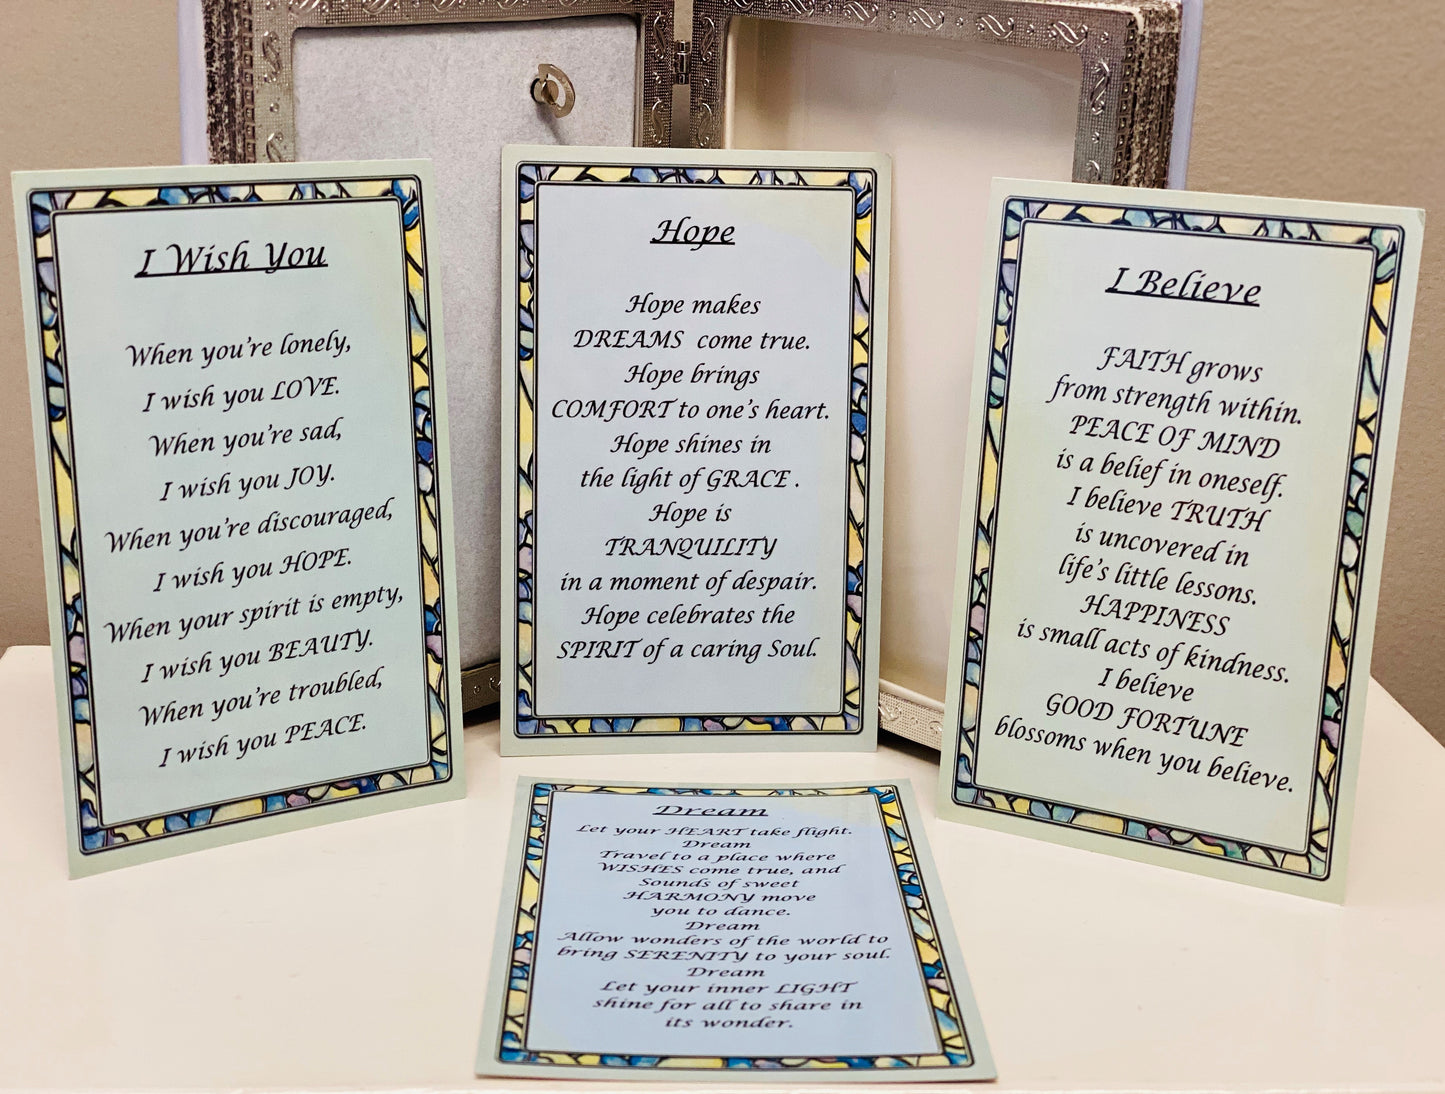 I Wish You
When you're lonely,
I wish you LOVE.
When you're sad,
I wish you JOY.
When you're discouraged,
I wish you HOPE.
When your spirit is empty,
I wish you BEAUTY.
When you're troubled,
I wish you PEACE.
Hope
Hope makes
DREAMS come true.
Hope brings
COMFORT to one's heart.
Hope shines in
the light of GRACE .
Hope is
TRANQUILITY
in a moment of despair.
Hope celebrates the
SPIRIT of a caring Soul.
I Believe
FAITH grows
from strength within.
PEACE OF MIND
is a belief in oneself.
I believe TRUTH
is uncovered in
life's little lessons.
HAPPINESS
is small acts of kindness.
I believe
GOOD FORTUNE
blossoms when you believe.
Dream
Let your HEART take flight.
Dream
Travel to a place where
WISHES come true, and
Sounds of sweet
HARMONY move
you to dance.
Dream
Allow wonders of the world to
bring SERENITY to your soul.
Dream
Let your inner LIGHT
shine for all to share in
its wonder.